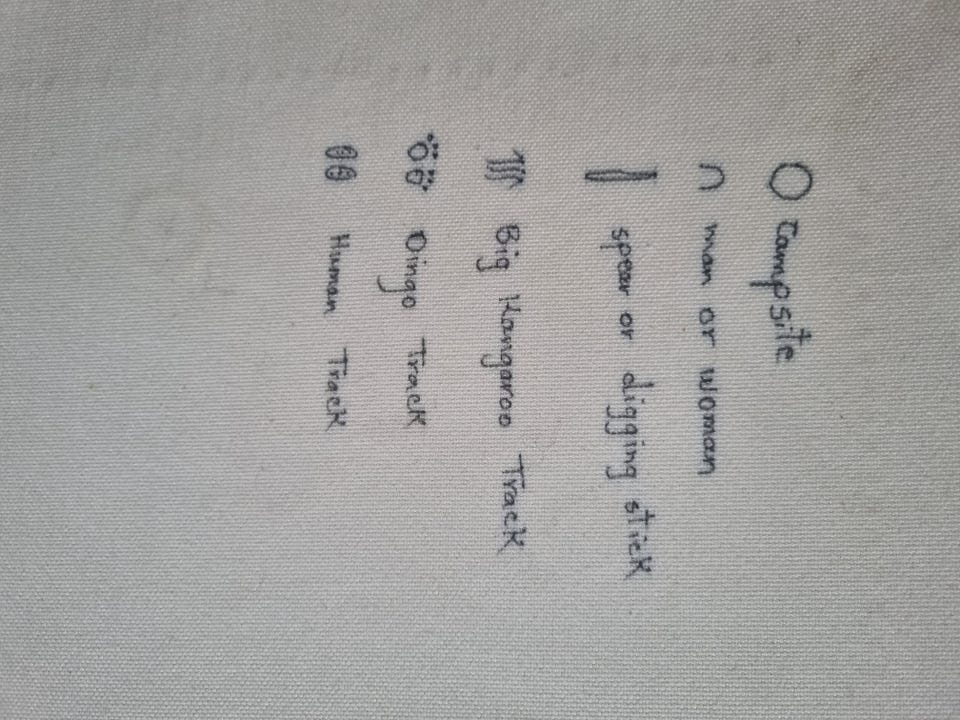 Campsite
man or woman
spear or digging stick
Big Kangaroo Track
Dingo Track
Human Track